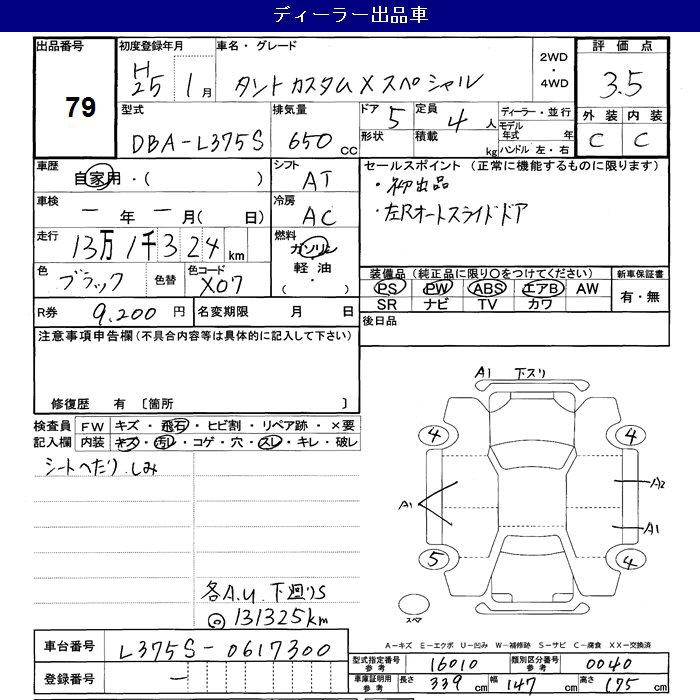 ディーラー出品車
出品番号 79
初度登録年月 H25 1月
車名・グレード タントカスタムXスペシャル
2WD・4WD
評価点 3.5
外装 内装
C C
型式 DBA-L375S
排気量 650cc
ドア 5 形状
定員 4人 積載 kg
ディーラー・並行
モデル年式 年
ハンドル 左・右
車歴 自家用・( )
シフト AT
車検 ー年ー月(日)
冷房 AC
走行 13万1千324km
燃料 ガソリン・軽油・( )
色 ブラック 色替 色コード X07
R券 9,200円 名変期限 月 日
セールスポイント(正常に機能するものに限ります)
・初出品
・左Rオートスライドドア
装備品(純正品に限り○をつけてください)
PS PW ABS エアB AW
SR ナビ TV カワ
新車保証書
有・無
後日品
注意事項申告欄(不具合内容等は具体的に記入して下さい)
修復歴 有 〔箇所 〕
検査員記入欄
FW キズ・飛石・ヒビ割・リペア跡・×要
内装 キズ・汚レ・コゲ・穴・スレ・キレ・破レ
シートへたり.しみ
各A.U.下廻りS
◎131325km
A1 下スリ
4 4
A1 A2
A1
5 4
スペア
A-キズ E-エクボ U-凹み W-補修跡 S-サビ C-腐食 XX-交換済
車台番号 L375S-0617300
登録番号 ー
型式指定番号 参考 16010 類別区分番号 参考 0040
車庫証明用 参考 長さ 339cm 幅 147cm 高さ 175cm